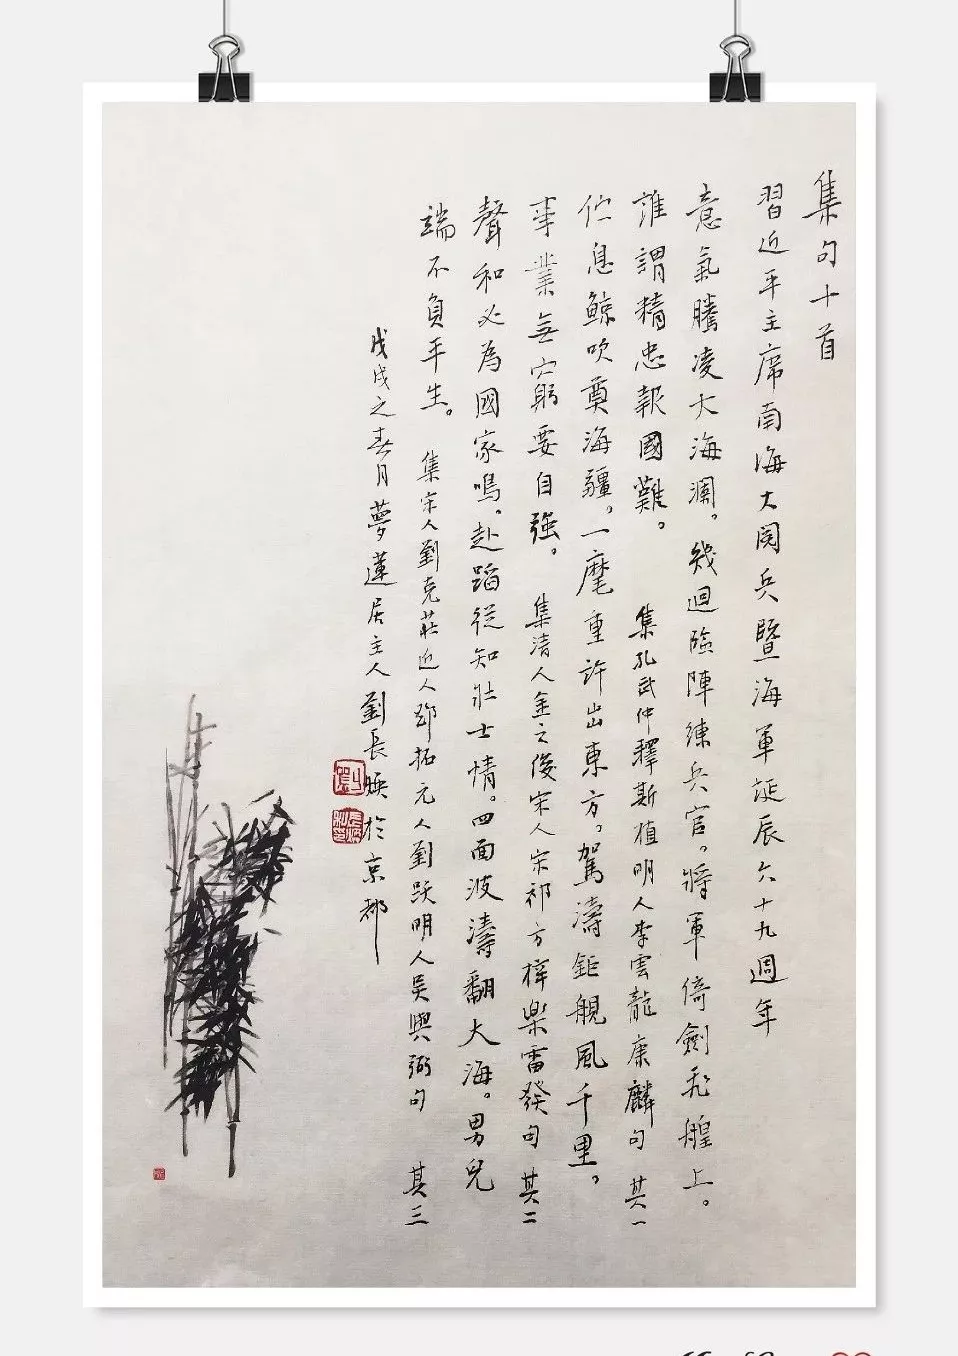 集句十首
習近平主席南海大閱兵暨海軍誕辰六十九週年
意氣騰凌大海瀾。幾迴臨陣練兵官。將軍倚劍飛艎上。
誰謂精忠報國難。 集孔武仲釋斯植明人李雲龍康麟句 其一
伫息鲸吹奠海疆。一麾重許出東方。駕濤鉅艦風千里。
事業無窮要自強。 集清人金之俊宋人宋祁方梓樂雷發句 其二
聲和必為國家鳴。赴蹈從知壯士情。四面波濤翻大海。男兒
端不負平生。 集宋人劉克莊近人鄧拓元人劉躍明人吳與弼句 其三
戊戌之春月夢蓮居主人劉長煥於京都